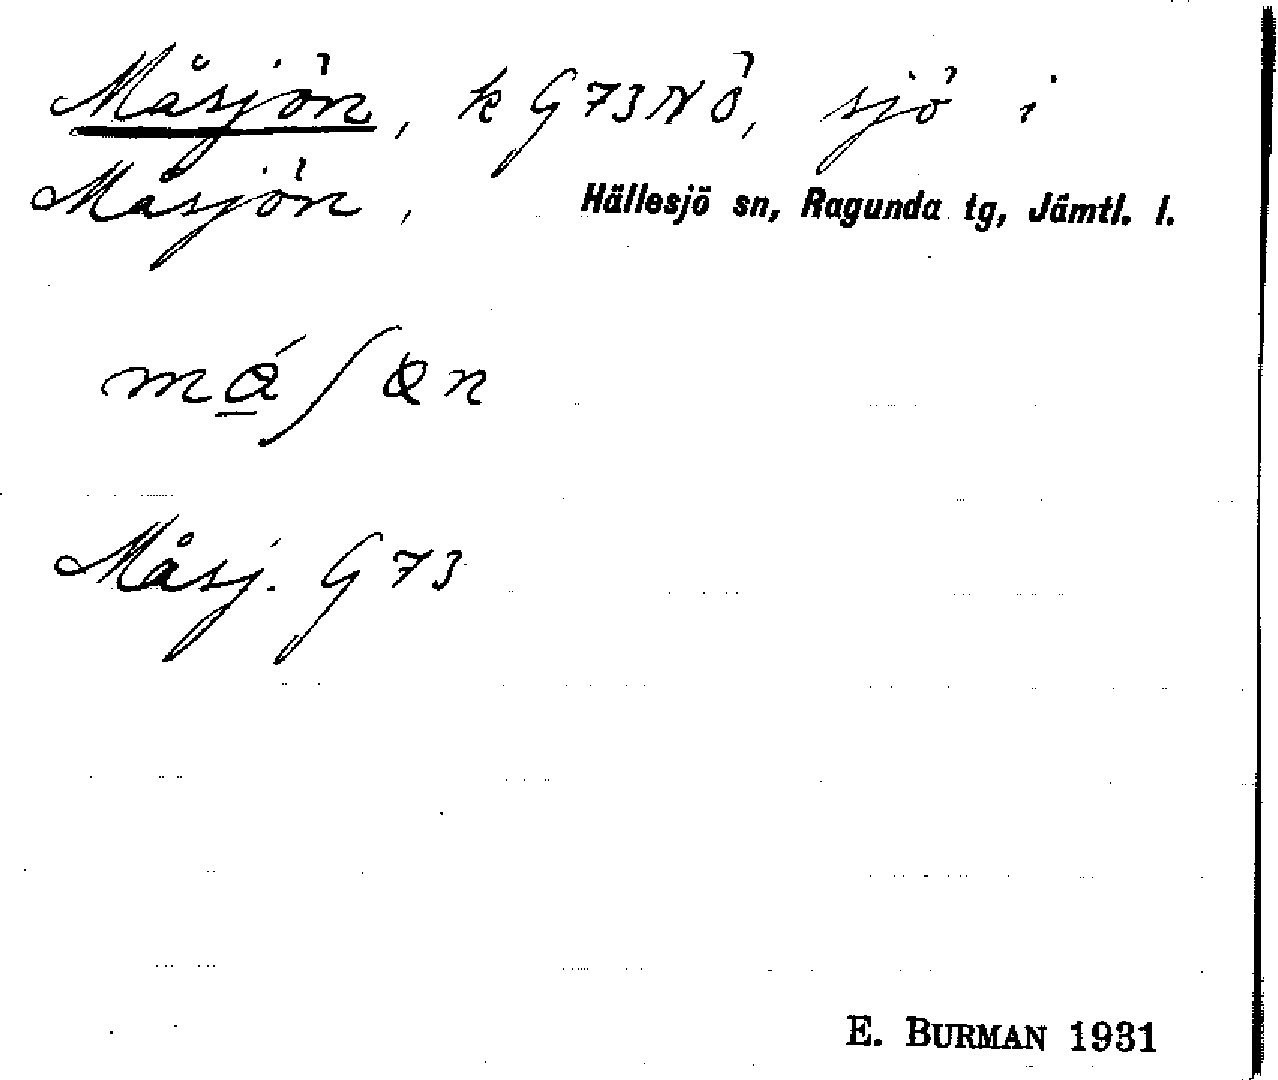 Måsjön, k G 73 NÖ, sjö i
Måsjön, Hällesjö sn, Ragunda tg, Jämtl. l.
Måsj. G 73
E. BURMAN 1931